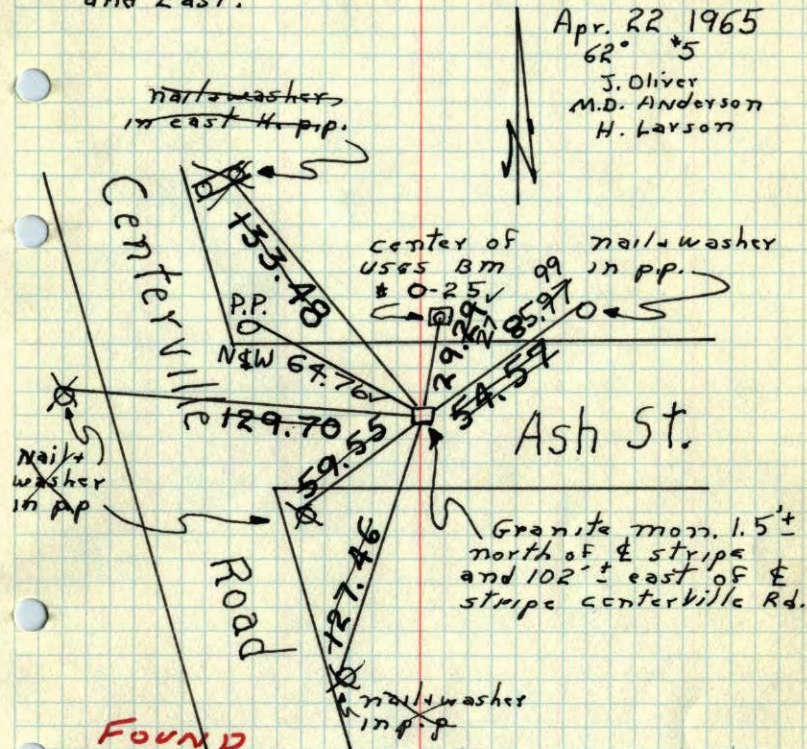 and East.
Apr. 22 1965
62° #5
J. Oliver
M.D. Anderson
H. Larson
nail & washer
in east H. p.p.
Centerville
133.48
center of
USGS BM
# 0-25✓
nail & washer
in p.p.
P.P.
N&W 64.76✓
29.29
27
99
85.97
54.57
129.70
59.55
Ash St.
Nail +
washer
in p.p
Granite mon. 1.5'±
north of ℄ stripe
and 102'± east of ℄
stripe centerville Rd.
Road
127.46
nail & washer
in p.p
FOUND